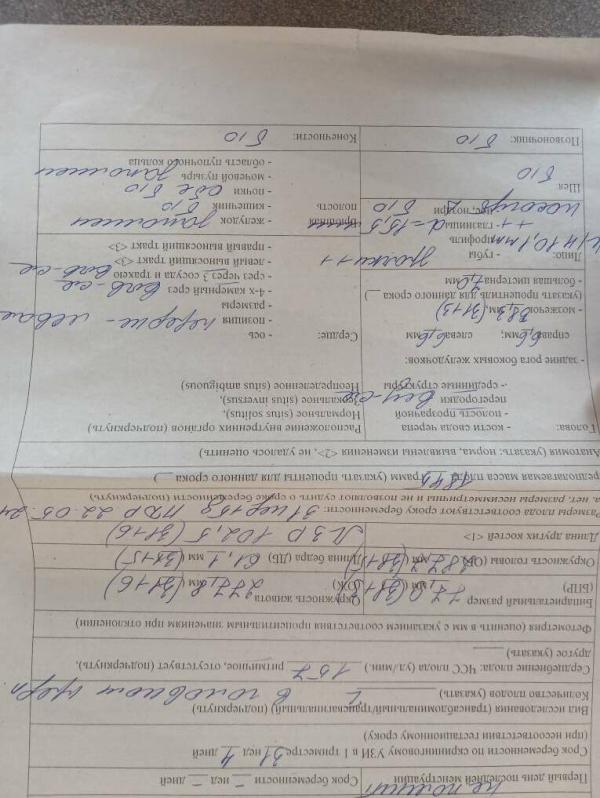 Первый день последней менструации не помнит Срок беременности - нед - дней
Срок беременности по скрининговому УЗИ в 1 триместре 31 нед 4 дней
(при несоответствии гестационному сроку)
Вид исследования (трансабдоминальный/трансвагинальный) (подчеркнуть)
Количество плодов (указать) 1 в головном
Сердцебиение плода: ЧСС плода (уд/мин.) 157 ритмичное, отсутствует (подчеркнуть),
другое (указать)
Фетометрия (оценить в мм с указанием соответствия процентильным значениям при отклонении)
Бипариетальный размер (БПР) мм Окружность живота (ОЖ) мм (31+6)
Окружность головы (ОГ) мм Длина бедра (ДБ) 61,1 мм
Длина других костей <1> ЛЗР 102,5 (31+6)
Размеры плода соответствуют сроку беременности: 31 нед ПДР 22.05.24
да, нет, размеры несимметричны и не позволяют судить о сроке беременности (подчеркнуть)
Предполагаемая масса плода грамм (указать проценты для данного срока )
Анатомия (указать: норма, выявлены изменения <2>, не удалось оценить)
Голова: - кости свода черепа
- полость прозрачной
перегородки
- срединные структуры
- задние рога боковых желудочков:
справа 6,6 мм; слева 6,6 мм
- мозжечок мм, (31+3)
(указать процентиль для данного срока )
- большая цистерна мм
Расположение внутренних органов (подчеркнуть)
Нормальное (situs solitus),
Зеркальное (situs inversus),
Неопределенное (situs ambiguous)
Сердце: - ось
- позиция
- размеры
- 4-х камерный срез
- срез через 3 сосуда и трахею
- левый выносящий тракт <3>
- правый выносящий тракт <3>
Лицо: - губы
- профиль
- глазницы ++ d=15,5
- нос, ноздри
Шея б/о
Брюшная полость - желудок заполнен
- кишечник б/о
- почки обе б/о
- мочевой пузырь заполнен
- область пупочного кольца
Позвоночник: б/о
Конечности: б/о